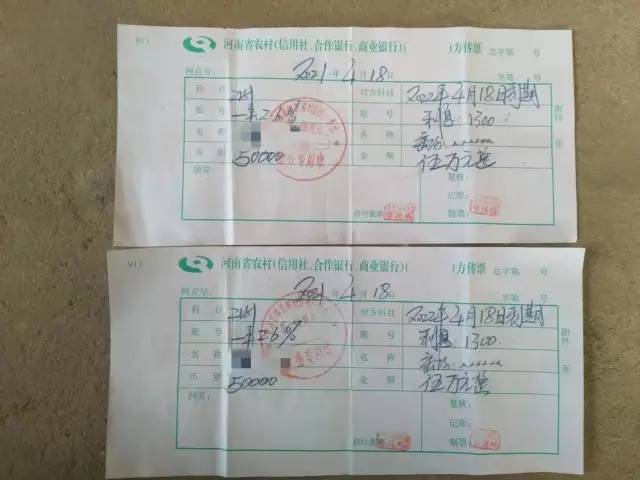 911
河南省农村(信用社、合作银行、商业银行)( )方传票 总字第 号
网点号: 2021年4月18日 字第 号
科目 对方科目 2022年4月18日到期
账号 一年2.6% 账号 利息:1300
名称 名称 密码:xxxxxx
币别 50000 金额 伍万元整
摘要: 复核:
记账:
制票:
附件 张
911
河南省农村(信用社、合作银行、商业银行)( )方传票 总字第 号
网点号: 2021年4月18日 字第 号
科目 对方科目 2022年4月18日到期
账号 一年2.6% 账号 利息:1300
名称 名称 密码:xxxxxx
币别 50000 金额 伍万元整
复核:
记账:
制票:
附件 张